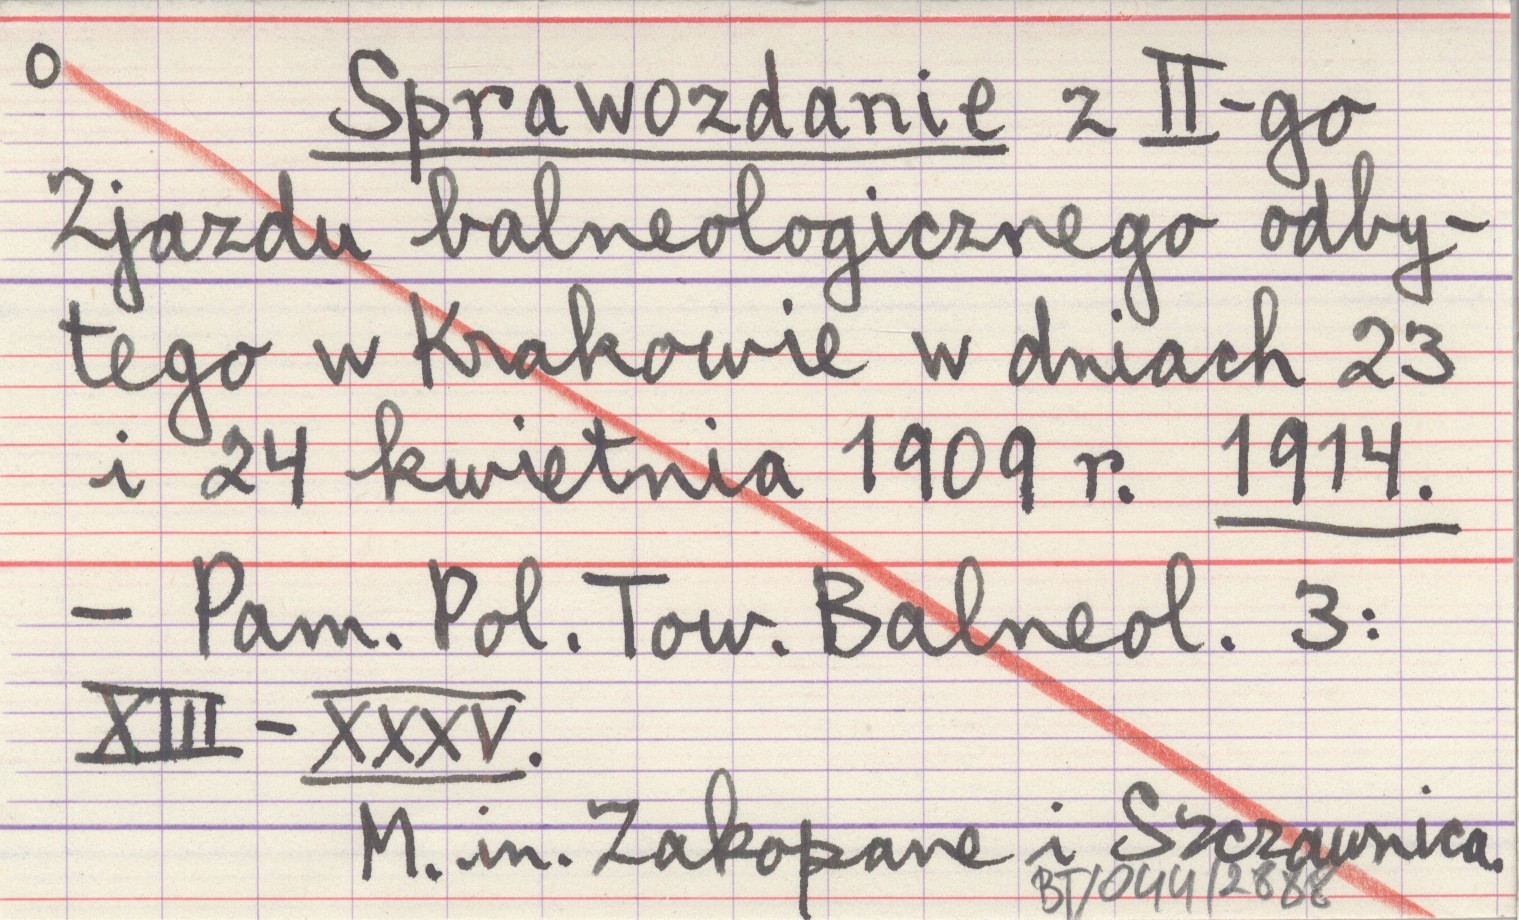 O
Sprawozdanie z II-go
Zjazdu balneologicznego odby-
tego w Krakowie w dniach 23
i 24 kwietnia 1909 r. 1914.
- Pam. Pol. Tow. Balneol. 3:
XIII - XXXV.
M. in. Zakopane i Szczawnica.
BT/044/2888